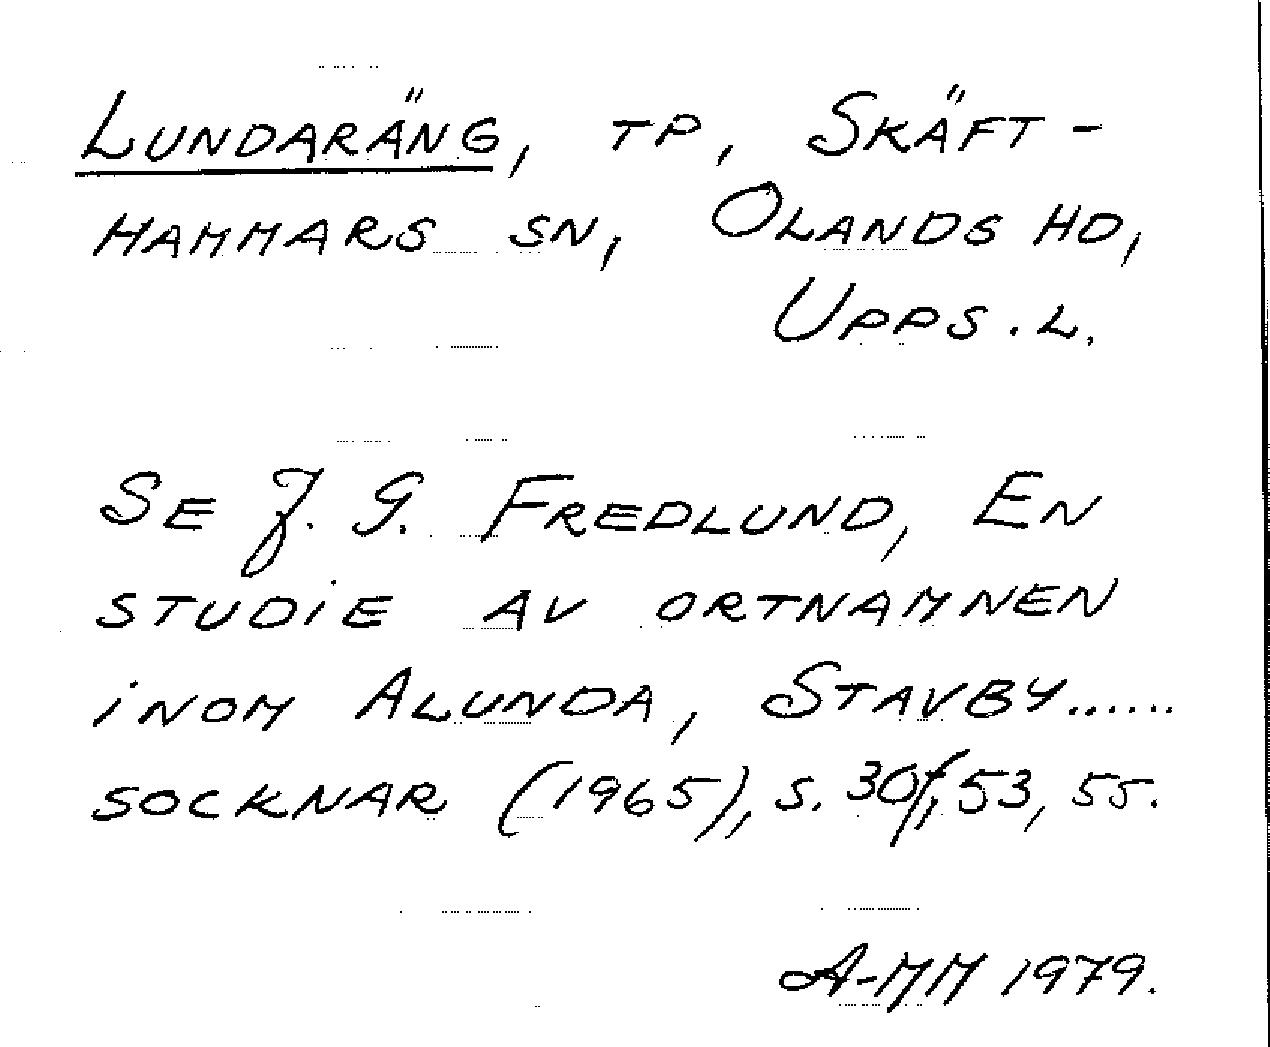 LUNDARÄNG, TP, SKÄFT-
HAMMARS SN, OLANDS HD,
UPPS. L.
SE J. G. FREDLUND, EN
STUDIE AV ORTNAMNEN
INOM ALUNDA, STAVBY......
SOCKNAR (1965), S. 30f, 53, 55.
A-MM 1979.